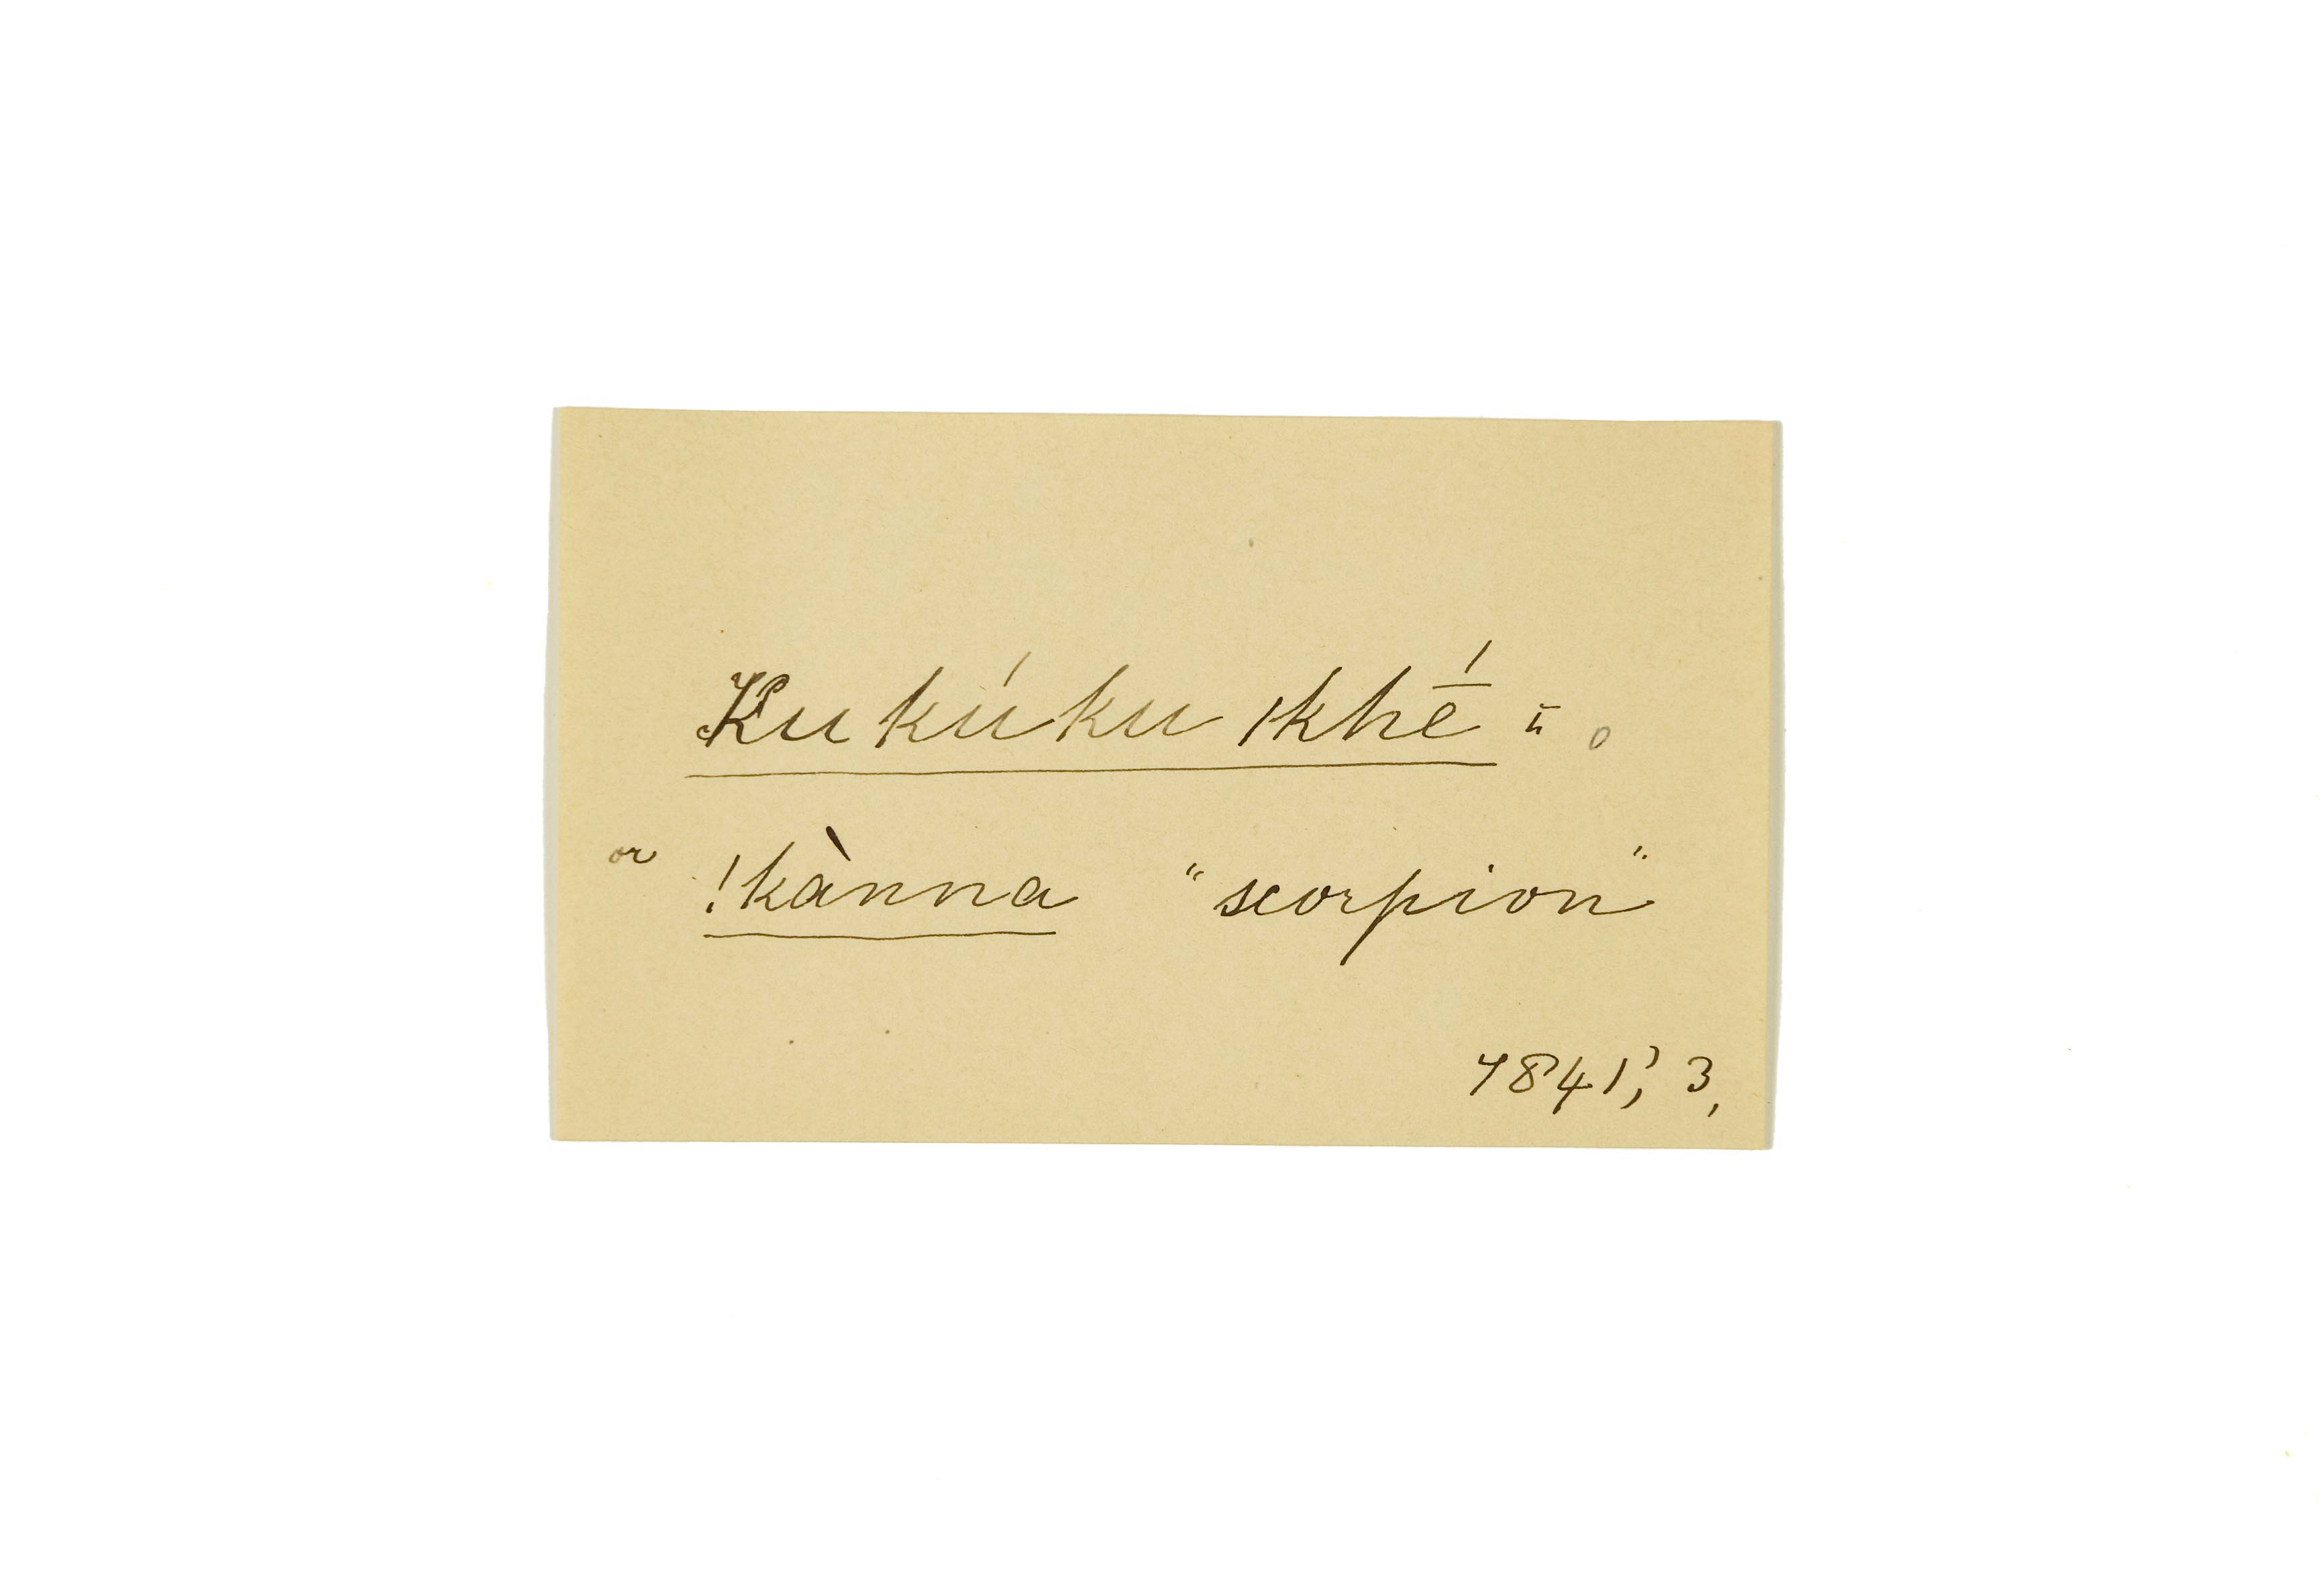 Kukúku |khḗ ⁼ 。
or !kànna "scorpion"
7841'; 3,